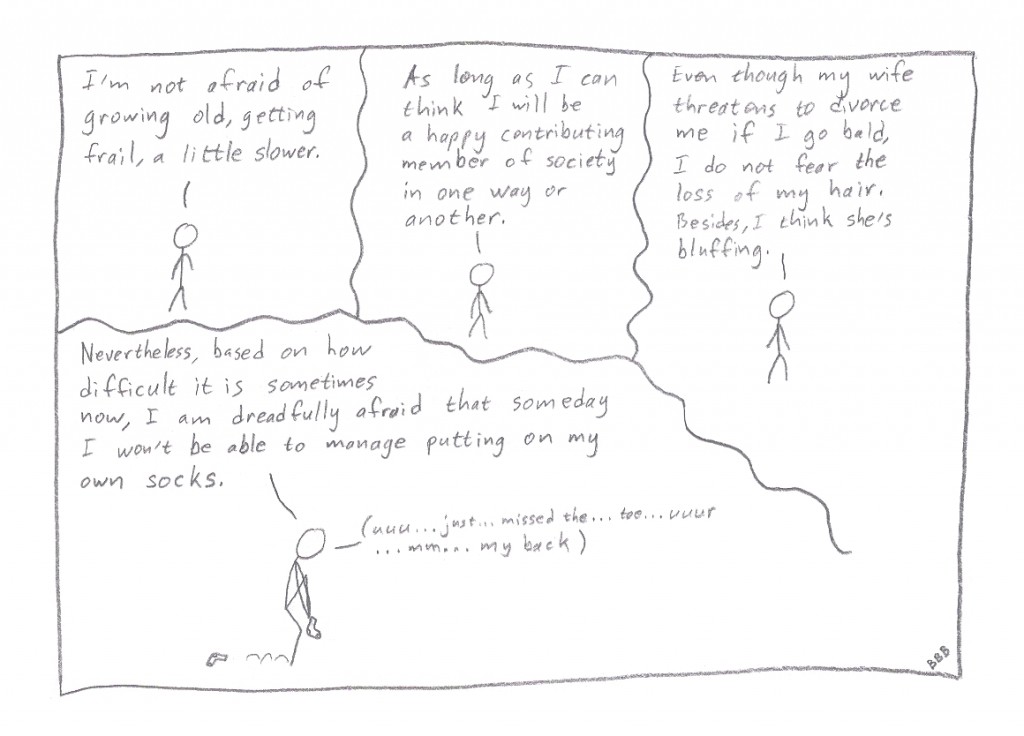 I'm not afraid of
growing old, getting
frail, a little slower.
As long as I can
think I will be
a happy contributing
member of society
in one way or
another.
Even though my wife
threatens to divorce
me if I go bald,
I do not fear the
loss of my hair.
Besides, I think she's
bluffing.
Nevertheless, based on how
difficult it is sometimes
now, I am dreadfully afraid that someday
I won't be able to manage putting on my
own socks.
(uuu...just... missed the... toe...uuur
...mm... my back)
BBB